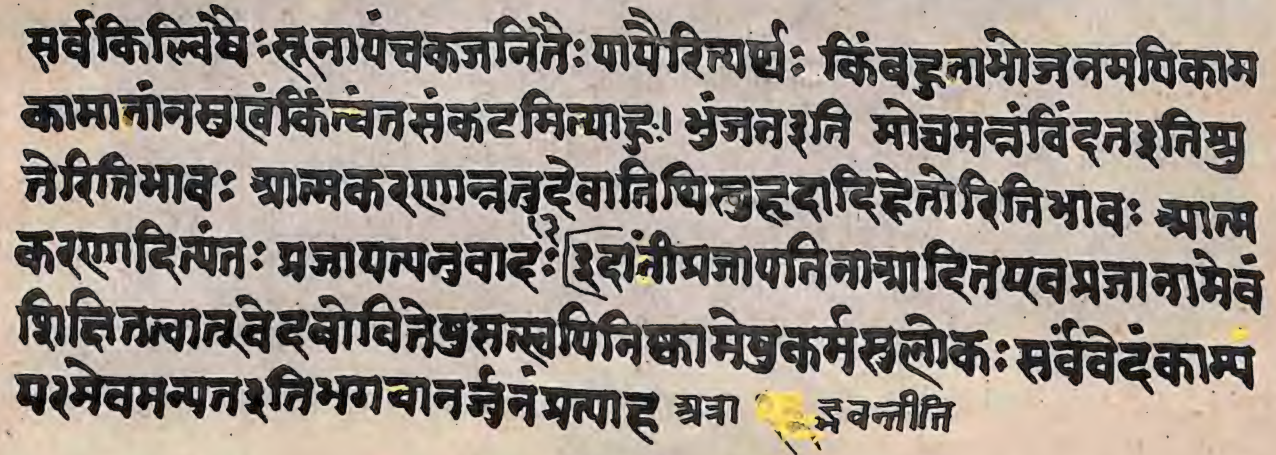 सर्वकिल्विषैः सूनापंचकजनितैः पापैरित्यर्थः किंबहुनाभोजनमपिकाम
कामानांनसुखंकिंत्वंतसंकटमित्याह। भुंजतइति मोघमन्नंविंदतइतिश्रु
तेरितिभावः आत्मकरणान्नतुदेवातिथिसुहृदादिहेतोरितिभावः आत्म
करणादित्यंतः प्रजापत्यनुवादः १३ इदांनीप्रजापतिनाआदितएवप्रजानामेवं
शिक्षितत्वात् वेदबोधितेषुसत्स्वपिनिष्कामेषुकर्मसुलोकः सर्ववेदंकाम्य
परमेवमन्यतइतिभगवानर्जुनंप्रत्याह अन्ना द्भवन्तीति